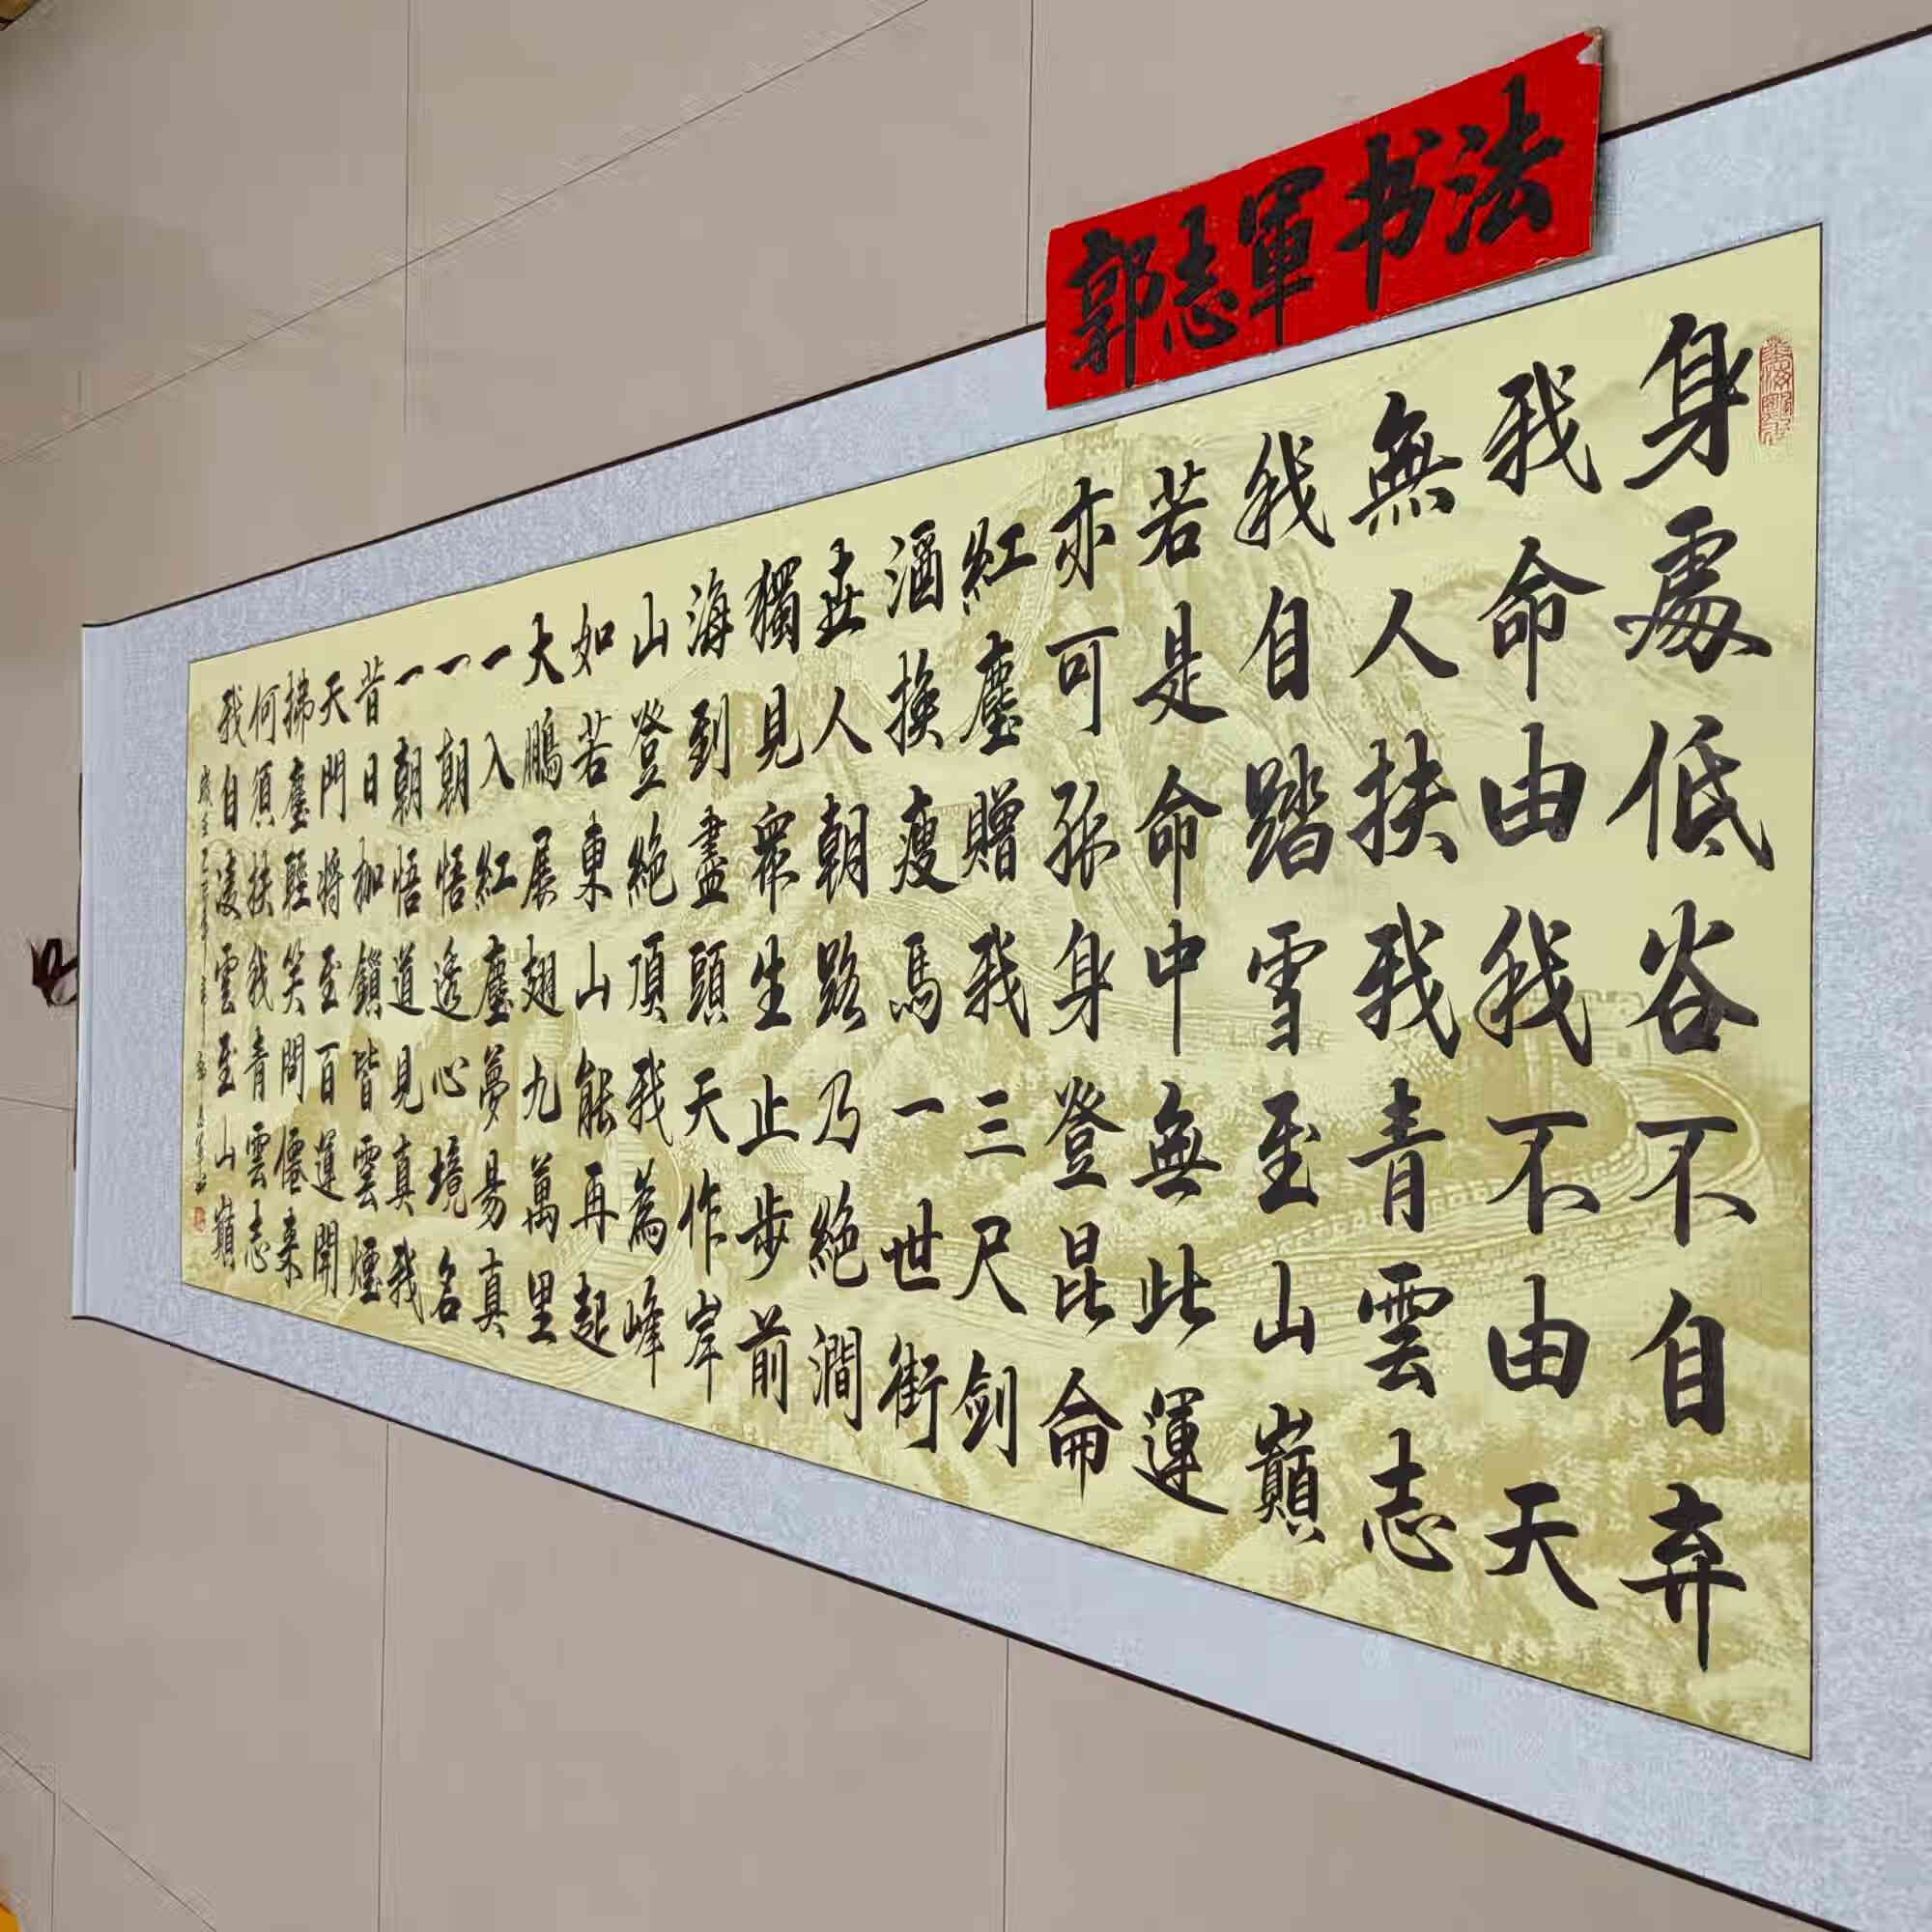 郭志軍书法
身處低谷不自弃
我命由我不由天
無人扶我青雲志
我自踏雪至山巔
若是命中無此運
亦可孤身登昆侖
紅塵贈我三尺剑
酒換瘦馬一世街
世人朝路乃絕澗
獨見衆生止步前
海到盡頭天作岸
山登絕頂我為峰
如若東山能再起
大鵬展翅九萬里
一入紅塵夢易真
一朝悟透心境名
一朝悟道見真我
昔日枷鎖皆雲煙
天門將至百運開
拂塵輕笑問僊来
何須扶我青雲志
我自凌雲至山巔